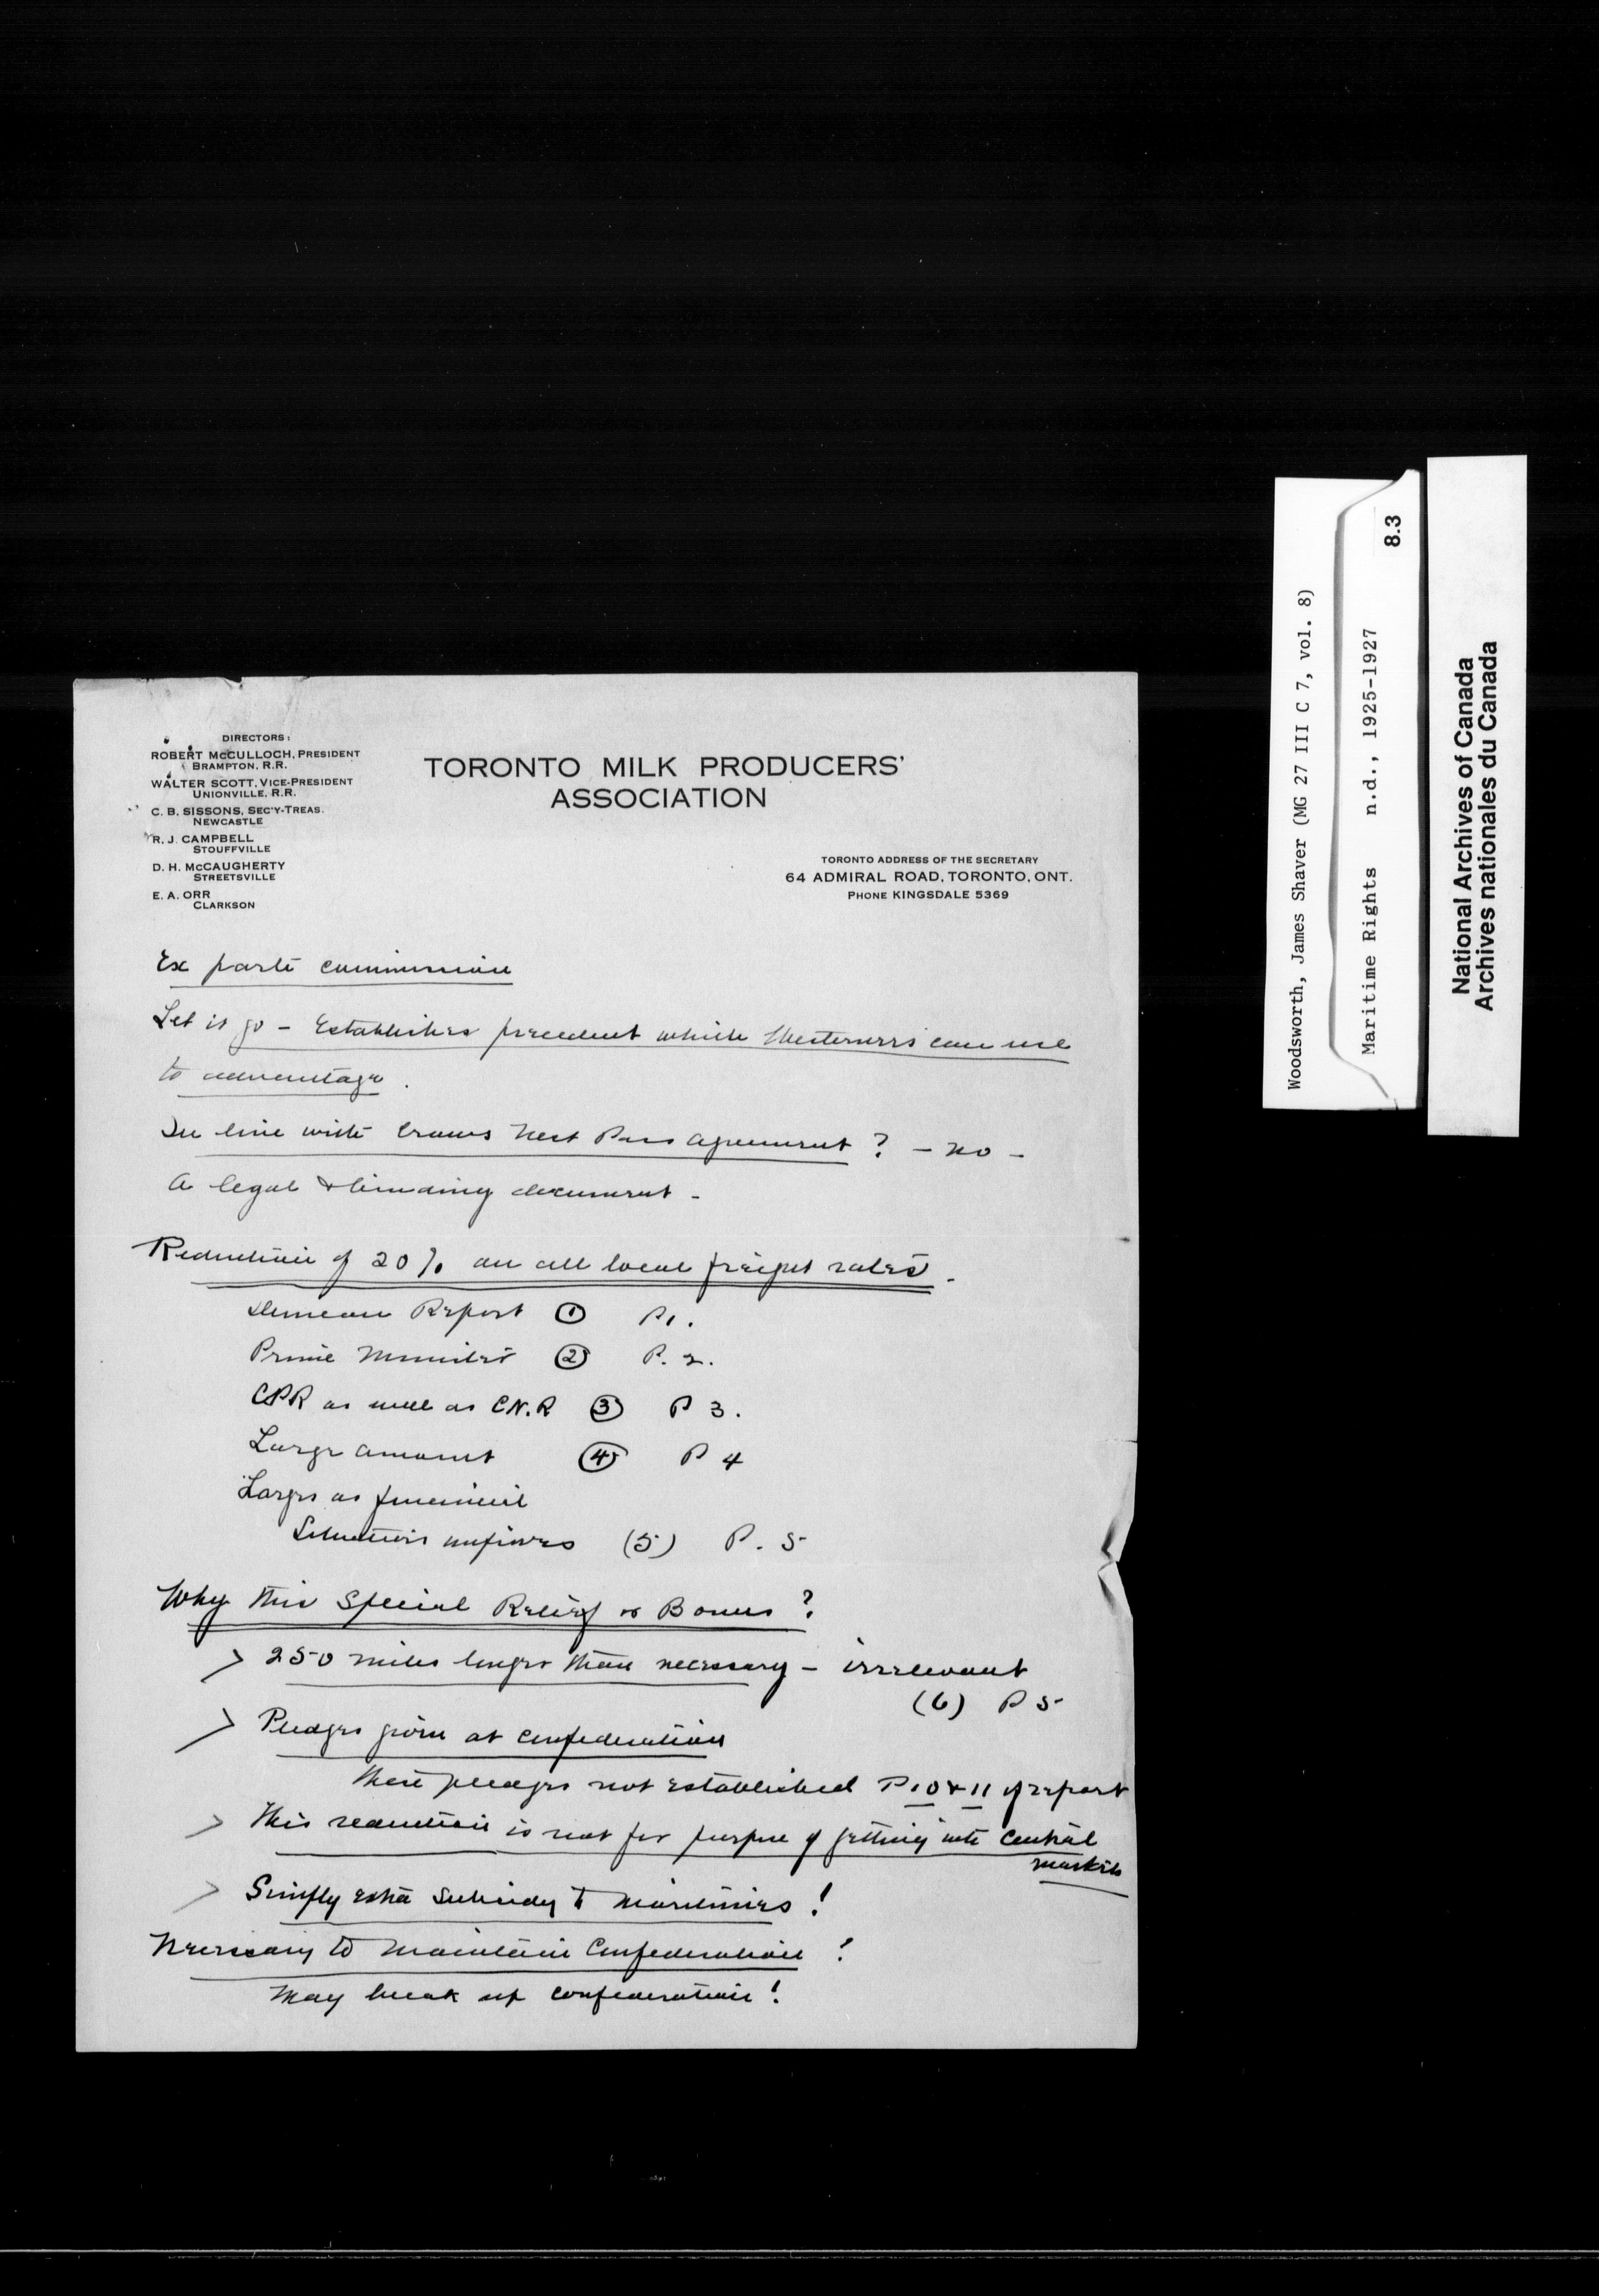 DIRECTORS:
ROBERT McCULLOCH, PRESIDENT
BRAMPTON, R.R.
WALTER SCOTT, VICE-PRESIDENT
UNIONVILLE, R.R.
C. B. SISSONS, SEC'Y-TREAS.
NEWCASTLE
R. J. CAMPBELL
STOUFFVILLE
D. H. McCAUGHERTY
STREETSVILLE
E. A. ORR
CLARKSON
TORONTO MILK PRODUCERS'
ASSOCIATION
TORONTO ADDRESS OF THE SECRETARY
64 ADMIRAL ROAD, TORONTO, ONT.
PHONE KINGSDALE 5369
Ex parte commission
Let it go - Establishes precedent which Westerners can use
to advantage.
In line with Crows Nest Pass Agreement? - No -
A legal & binding document -
Reduction of 20% on all local freight rates.
Duncan Report ① P1.
Prime Minister ② P. 2.
CPR as well as C.N.R ③ P 3.
Large amount ④ P 4
Larger as financial
Situation improves (5) P. 5
Why this Special Relief or Bonus?
> 250 miles longer than necessary - irrelevant
(6) P 5
> Pledges given at confederation
These pledges not established P10 & 11 of report
> This reduction is not for purpose of getting into Central
markets
> Simply extra subsidy to Maritimes!
Necessary to maintain Confederation!
May break up confederation!
Woodsworth, James Shaver (MG 27 III C 7, vol. 8)
Maritime Rights n.d., 1925-1927
8.3
National Archives of Canada
Archives nationales du Canada